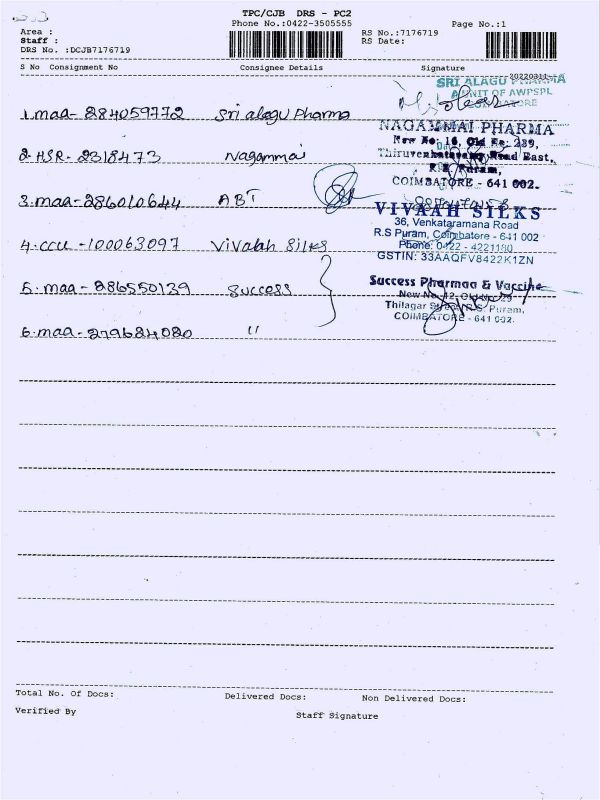 TPC/CJB DRS - PC2
Phone No.:0422-3505555
Page No.:1
Area :
Staff :
DRS No. :DCJB7176719
RS No.:7176719
RS Date:
S No Consignment No Consignee Details Signature
20220311
SRI ALAGU PHARMA
A UNIT OF AWPSPL
COIMBATORE
1. maa- 284059772 Sri alagu Pharma
NAGAMMAI PHARMA
New No: 16, Old No: 239,
Thiruvenkataswamy Road East,
R.S. Puram,
COIMBATORE - 641 002.
2. HSR- 2318473 Nagammai
3. maa- 286010644 ABT
VIVAAH SILKS
36, Venkataramana Road
R.S Puram, Coimbatore - 641 002
Phone: 0422 - 4221180
GSTIN: 33AAQFV8422K1ZN
4. CCU -100063097 Vivaah Silks
Success Pharmaa & Vaccine
New No. 12, Old No. 29
Thilagar Street, R.S. Puram,
COIMBATORE - 641 002.
5. maa- 286550139 Success
6. maa- 279684080 "
Total No. Of Docs: Delivered Docs: Non Delivered Docs:
Verified By Staff Signature